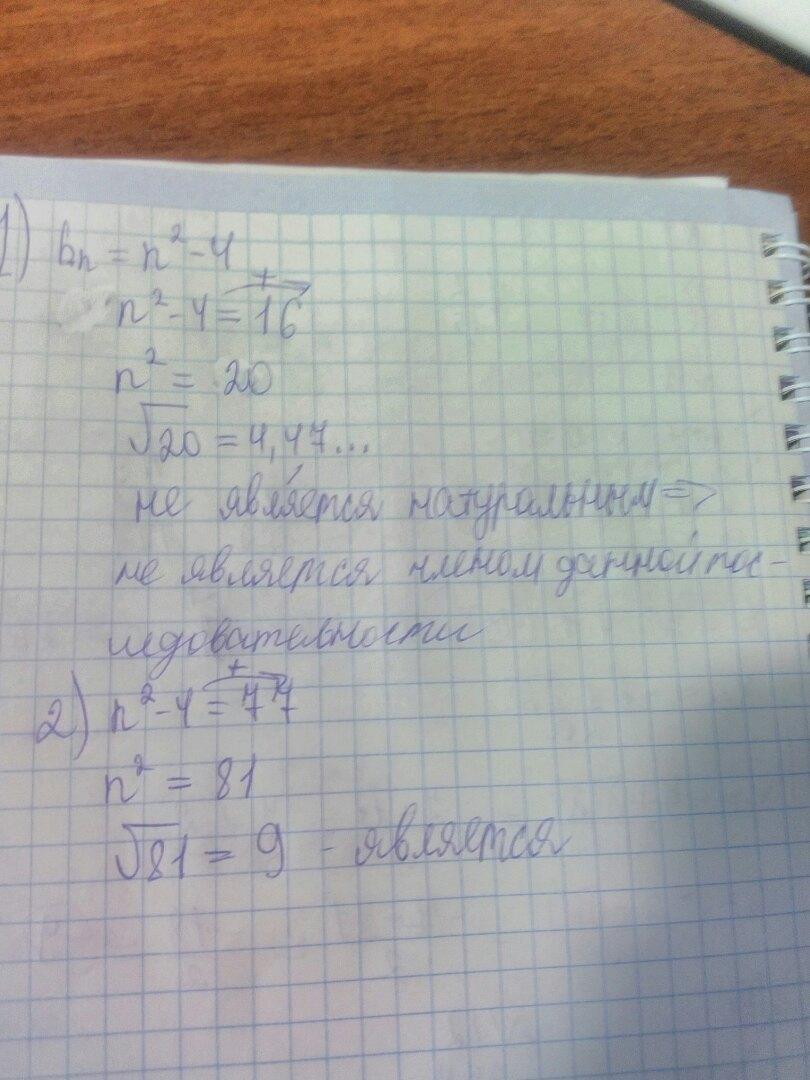 1) bn = n² - 4
+
n² - 4 = 16
n² = 20
√20 = 4,47...
не является натуральным =>
не является членом данной пос-
ледовательности
+
2) n² - 4 = 77
n² = 81
√81 = 9 - является